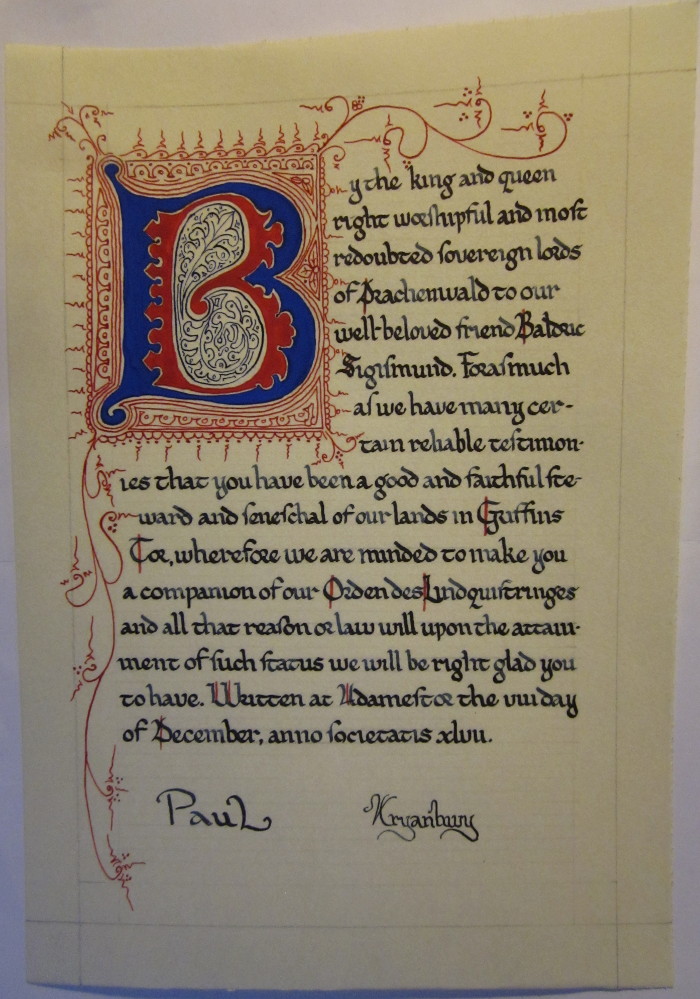 By the king and queen
right worshipful and most
redoubted sovereign lords
of Drachenwald to our
well-beloved friend Balduc
Sigismund. Forasmuch
as we have many cer-
tain reliable testimon-
ies that you have been a good and faithful ste-
ward and seneschal of our lands in Griffins
Tor, wherefore we are minded to make you
a companion of our Orden des Lindquistringes
and all that reason or law will upon the attain-
ment of such status we will be right glad you
to have. Written at Adamestor the viii day
of December, anno societatis xlvii.
Paul